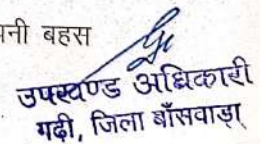 नी बहस
उपखण्ड अधिकारी
गढ़ी, जिला बाँसवाड़ा